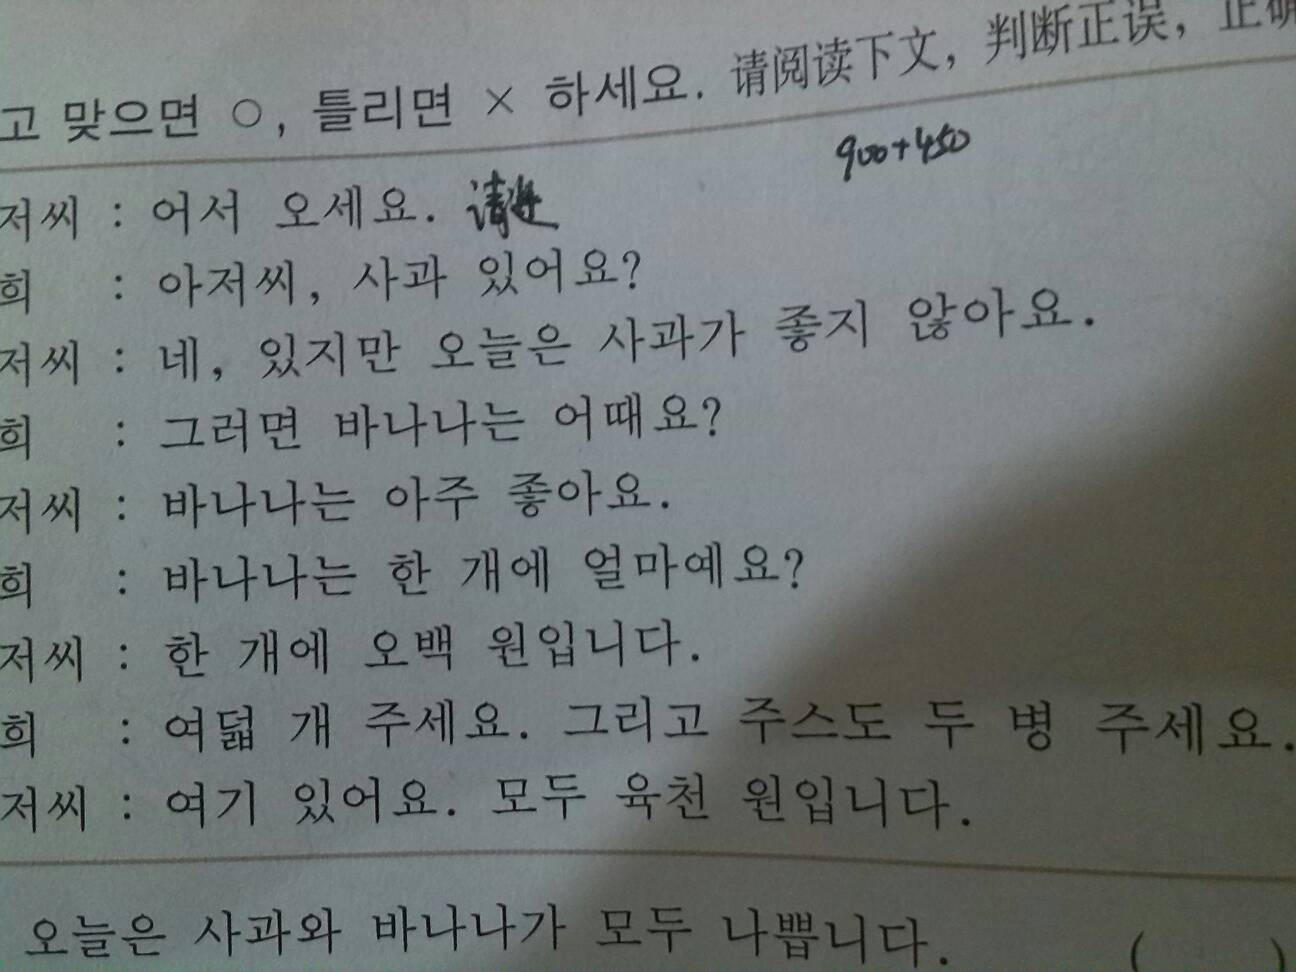 고 맞으면 ○, 틀리면 × 하세요. 请阅读下文，判断正误，正确
900+450
저씨 : 어서 오세요. 请进
희 : 아저씨, 사과 있어요?
저씨 : 네, 있지만 오늘은 사과가 좋지 않아요.
희 : 그러면 바나나는 어때요?
저씨 : 바나나는 아주 좋아요.
희 : 바나나는 한 개에 얼마예요?
저씨 : 한 개에 오백 원입니다.
희 : 여덟 개 주세요. 그리고 주스도 두 병 주세요.
저씨 : 여기 있어요. 모두 육천 원입니다.
오늘은 사과와 바나나가 모두 나쁩니다. ( )